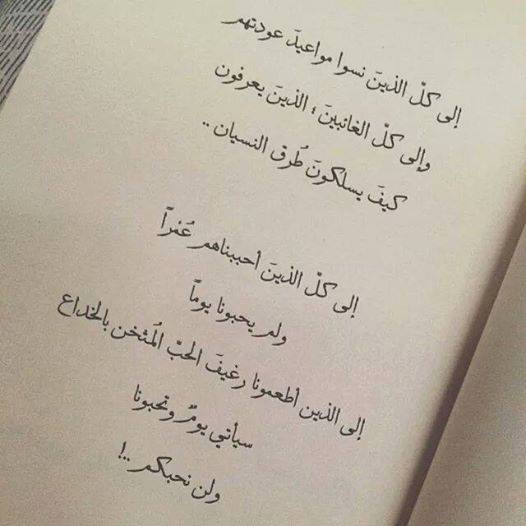 إلى كلّ الذينَ نسوا مواعيدَ عودتهم
وإلى كلّ الغائبينَ ؛ الذينَ يعرفون
كيفَ يسلكونَ طُرق النسيان ..
إلى كلّ الذينَ أحببناهم عُمْراً
ولم يحبونا يوماً
إلى الذين أطعمونا رغيفَ الحبّ المُثخن بالخداع
سيأتي يومٌ وتحبونا
ولن نحبكم ..!